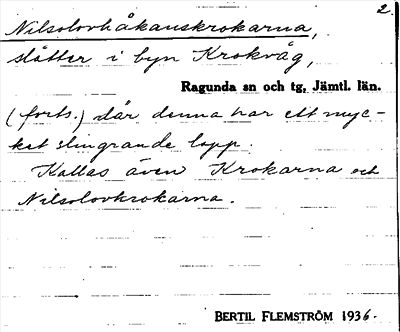 2.
Nilsolovhåkanskrokarna,
slåtter i byn Krokvåg,
Ragunda sn och tg, Jämtl. län.
(forts.) där denna har ett myc-
ket slingrande lopp.
Kallas även Krokarna och
Nilsolovkrokarna.
BERTIL FLEMSTRÖM 1936.